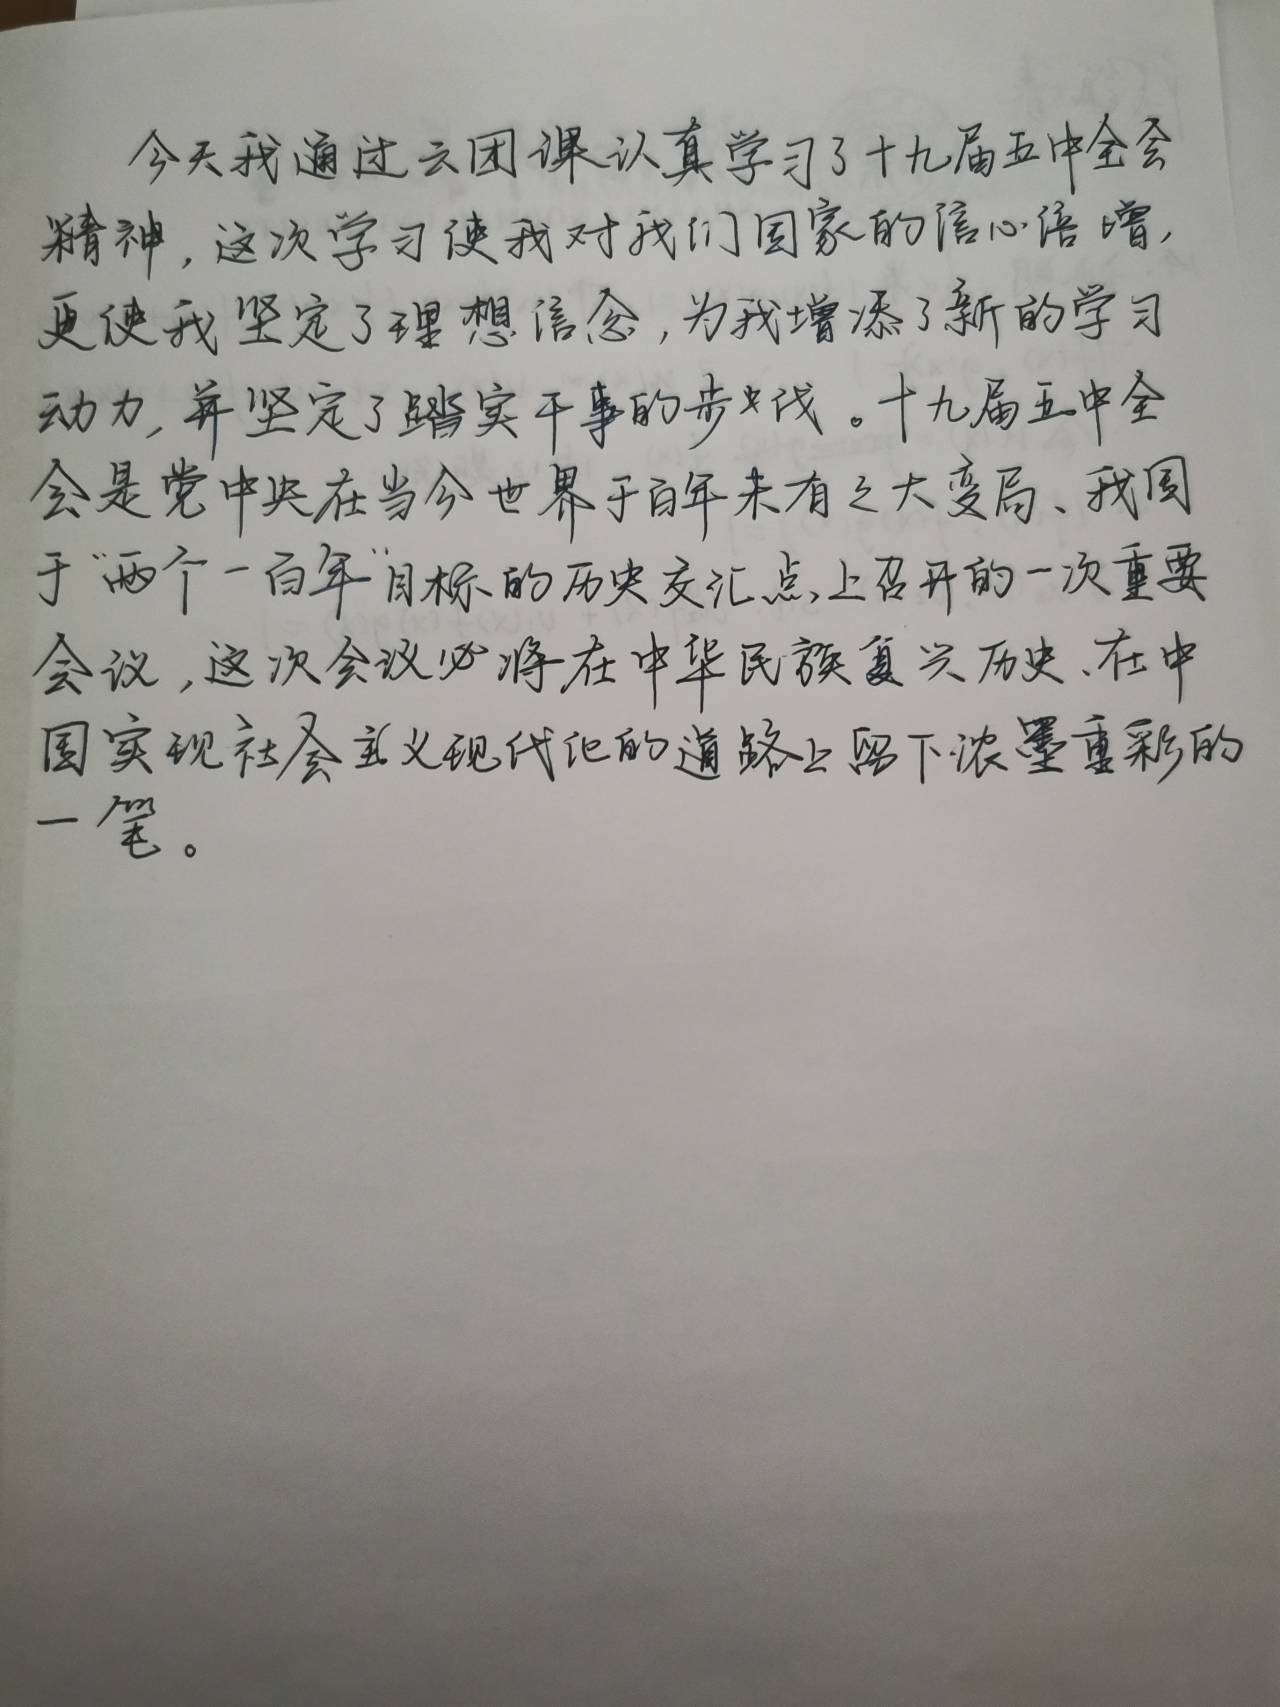 今天我通过云团课认真学习了十九届五中全会
精神，这次学习使我对我们国家的信心倍增，
更使我坚定了理想信念，为我增添了新的学习
动力，并坚定了踏实干事的步伐。十九届五中全
会是党中央在当今世界于百年未有之大变局、我国
于“两个一百年”目标的历史交汇点上召开的一次重要
会议，这次会议必将在中华民族复兴历史、在中
国实现社会主义现代化的道路上留下浓墨重彩的
一笔。